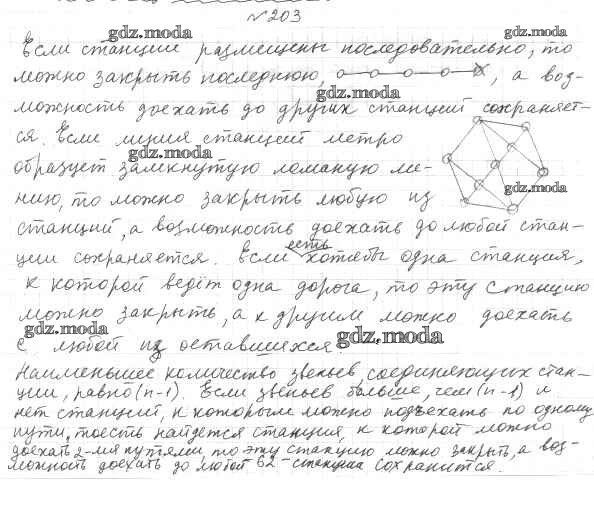 №203
gdz.moda gdz.moda
Если станции размещены последовательно, то
можно закрыть последнюю, а воз-
gdz.moda
можность доехать до других станций сохраняет-
ся. Если линия станций метро
gdz.moda
образует замкнутую ломаную ли-
gdz.moda
нию, то можно закрыть любую из
станций, а возможность доехать до любой стан-
есть
ции сохраняется. Если хотябы одна станция,
к которой ведёт одна дорога, то эту станцию
можно закрыть, а к другим можно доехать
gdz.moda gdz.moda
с любой из оставшихся.
Наименьшее количество звеньев соединяющих стан-
ции, равно (n-1). Если звеньев больше, чем (n-1) и
нет станций, к которым можно подъехать по одному
пути, тоесть найдется станция, к которой можно
доехать 2-мя путями, то эту станцию можно закрыть, а воз-
можность доехать до любой станции сохранится.